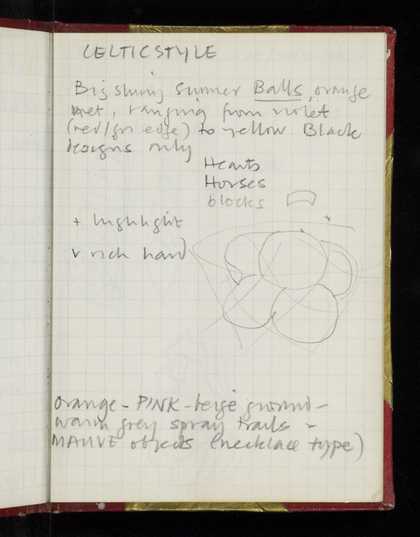 CELTIC STYLE
Big shiny summer Balls, orange
met, ranging from violet
(red/grn edge) to yellow Black
designs only
Hearts
Horses
blocks
+ highlight
v rich hard
orange - PINK - beige ground -
warm grey spray trails -
MAUVE objects (necklace type)